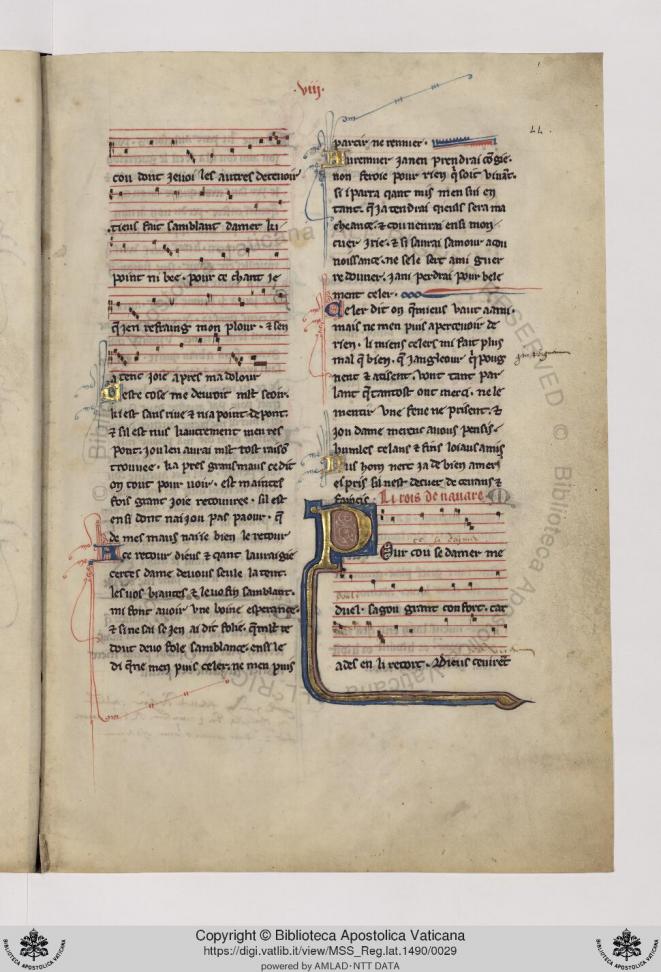 .viij.
44.
cou dont je voi les autres decevoir
.tieus fait samblant damer ki
point ni bee. pour ce chant je
q̃ jen refraing mon plour. ⁊ sen
atenc joie apres ma dolour
Ceste cose me devroit mlt seoir.
ki est sans rive ⁊ ni a point de pont.
⁊ sil est rius hautement men res
pont. jou len aurai mlt tost raisõ
trouvee. ka pres grans maus ce dit
on tout pour voir. est maintes
fois grant joie recouvree. sil est
ensi dont nai jou pas paour. q̃
de mes maus naise bien le retour
A ce retour dieus ⁊ qant lauraigie
certes dame de vous seule latenc.
les vos biautes ⁊ le vo fin samblant.
mi font avoir une boine esperance.
⁊ si ne sai se jen ai dit folie. q̃ mlt re
dout de vo fole samblance. ensi le
di q̃ ne men puis celer. ne men puis
partir ne remuer.
Au remuer ja nen prendrai cõgie.
non feroie pour rien q̃ soit vivãt.
si i parra qant mis men sui en
tant. q̃ ja tendrai queus sera ma
cheance. ⁊ couvenrai ensi mon
cuer irie. ⁊ si saurai samour a con
noissance. ne se le sert ami guer
redonner. jani perdrai pour bele
ment celer.
Celer dit on q̃ mieus vaut a ami.
mais ne men puis apercevoir de
rien. li miens celers mi fait plus
mal q̃ bien. q̃ jangleour q̃ poig
nent ⁊ atisent. vont tant par
lant q̃ tantost ont merci. ne le
mentir une feve ne prisent. ⁊
jou dame mercit a vous pensis.
humles celans ⁊ fins loiaus amis
Nus hom nert ja de bien amer
espris si nest decuer decevans ⁊
faintis. Li rois de navare
Pour cou se damer me
duel. sa gou grant confort. car
ades en li recort. A dieus
Copyright © Biblioteca Apostolica Vaticana
https://digi.vatlib.it/view/MSS_Reg.lat.1490/0029
powered by AMLAD·NTT DATA